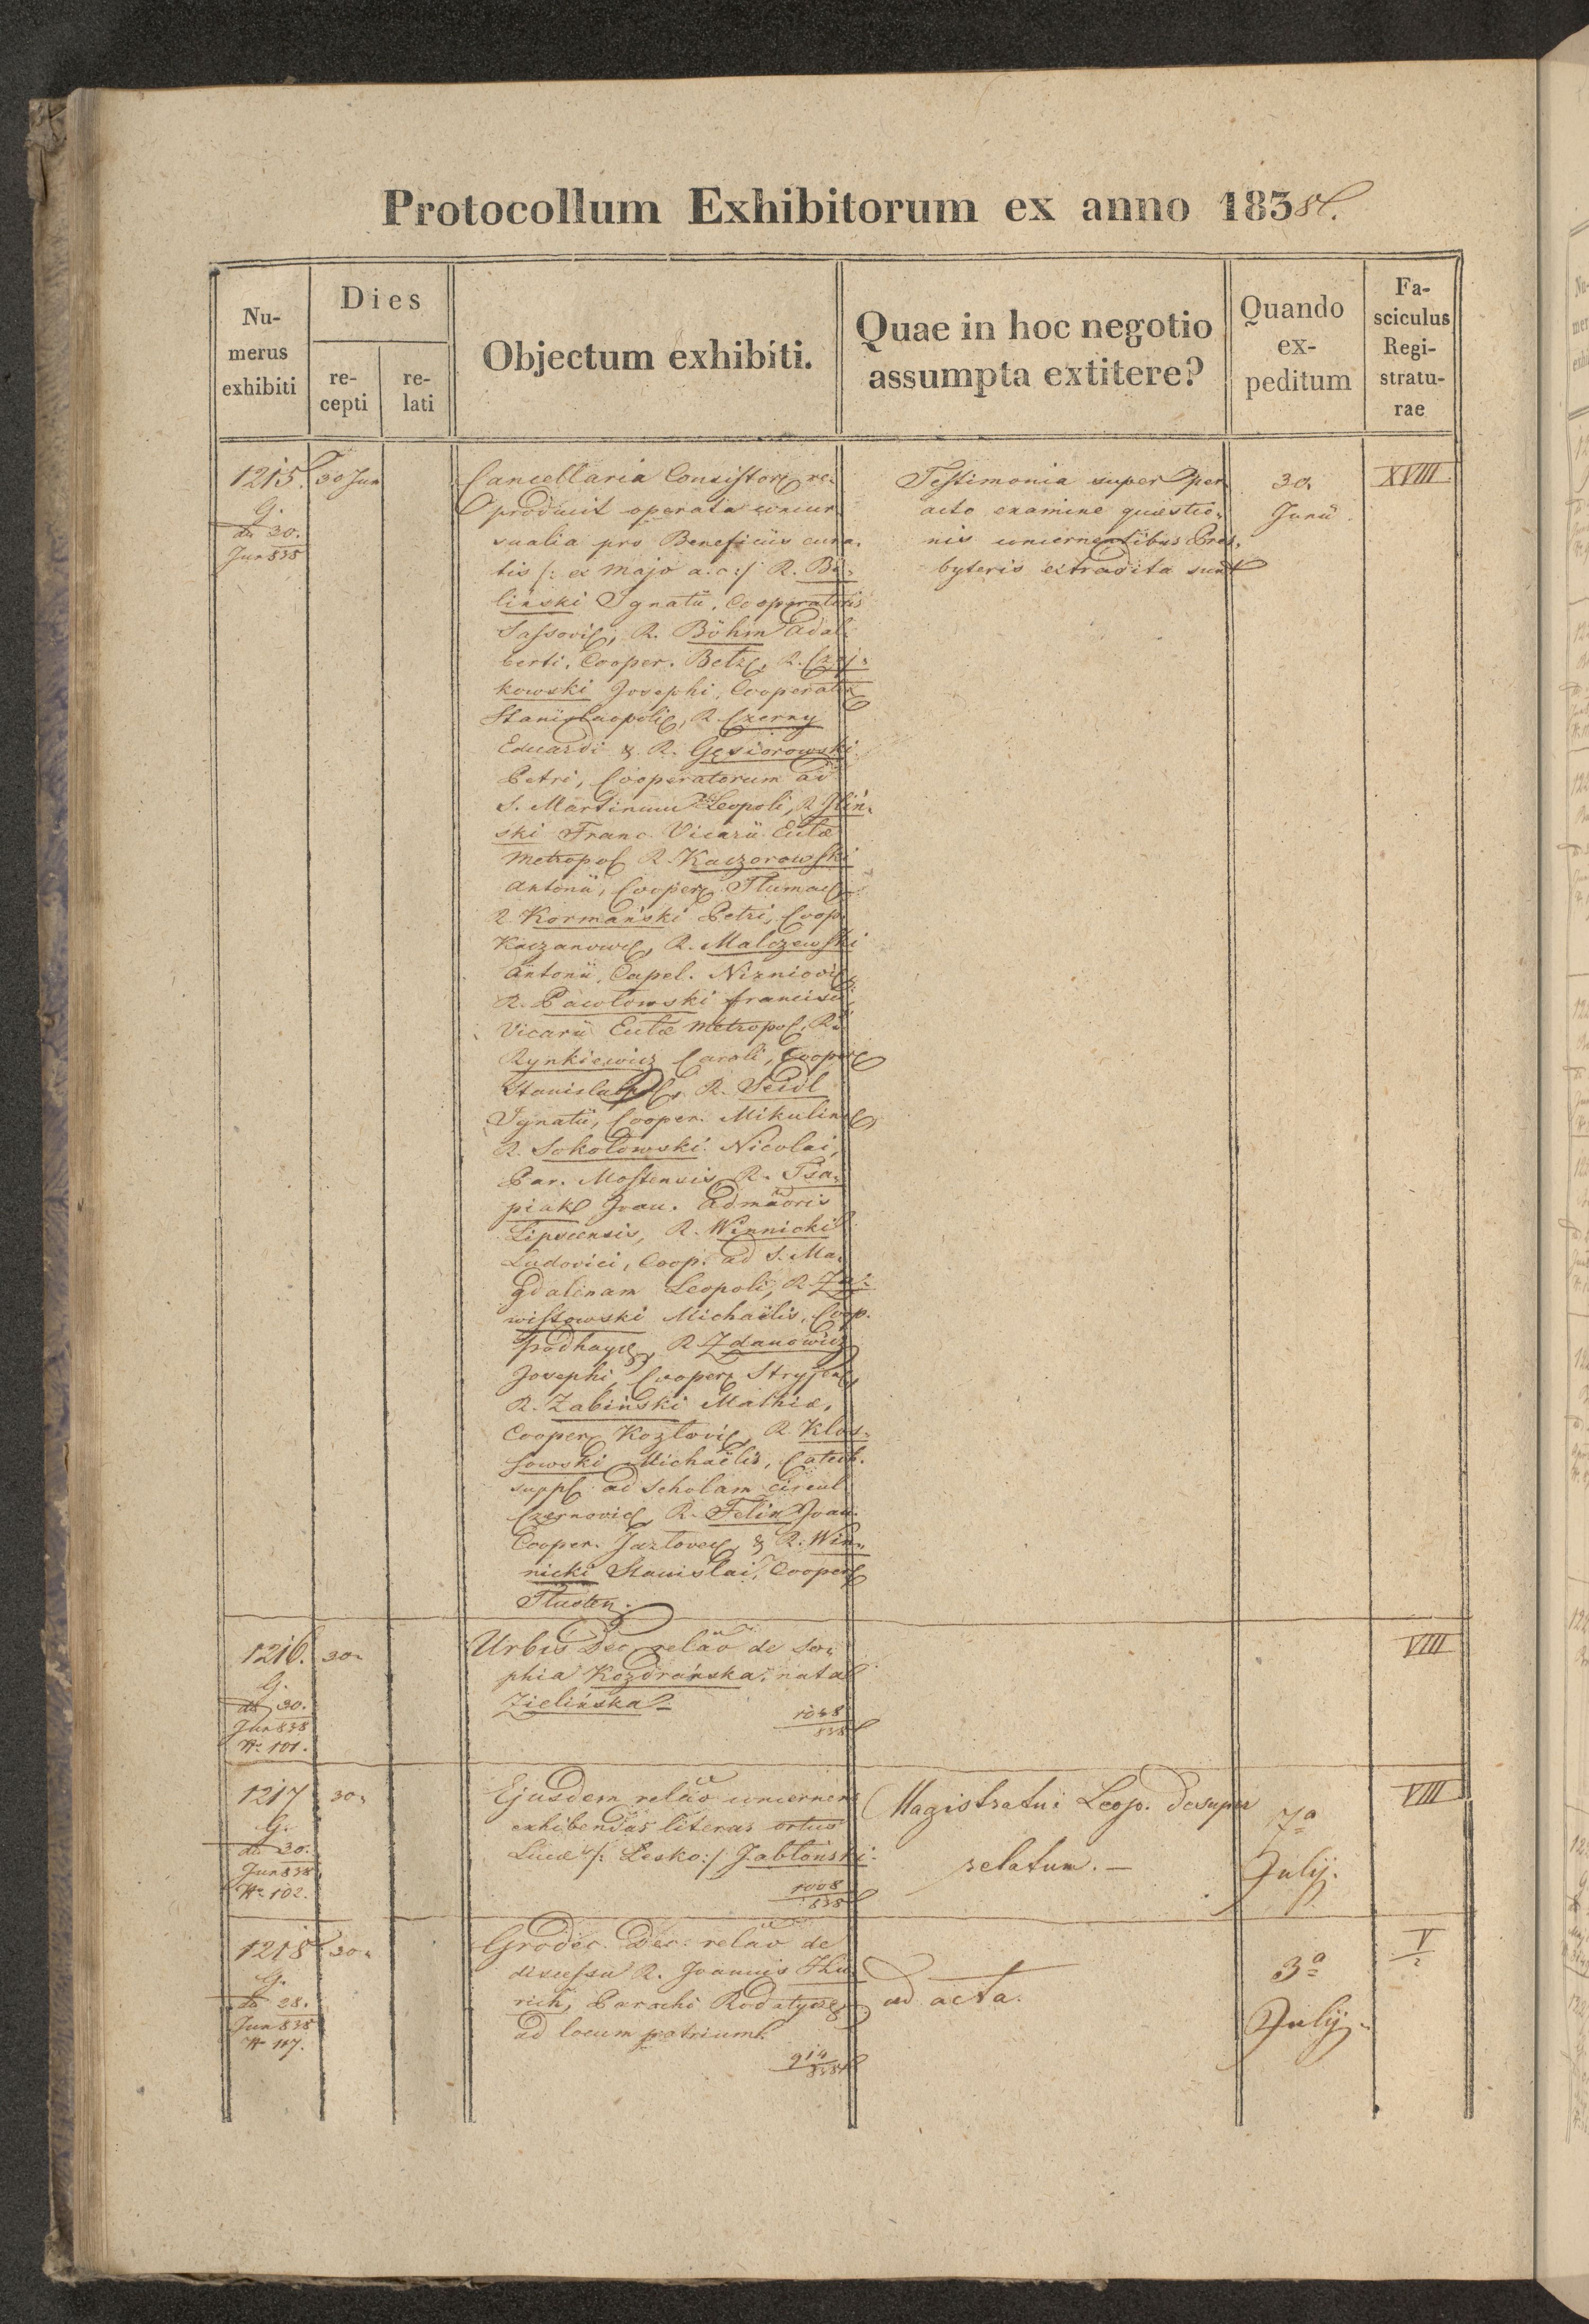 Protocollum Exhibitorum ex anno 1838.
Nu-
merus
exhibiti
Dies
re-
cepti
re-
lati
Objectum exhibiti.
Quae in hoc negotio
assumpta extitere?
Quando
ex-
peditum
Fa-
sciculus
Regi-
stratu-
rae
1215.
G.
dto 30.
Jun 838
30 Jun
Cancellaria Consistor re-
producit operata concur
sualia pro Beneficiis cura-
tis /: ex Majo a. c :/ R. Bi-
liński Ignatii, Cooperatoris
Sassovi, R. Böhm Adal
berti, Cooper. Betz, R. Czaj-
kowski Josephi, Cooperat
Stanislaopoli, R. Czerny
Eduardi & R. Gęsiorowski
Petri, Cooperatorum ad
S. Martinum Leopoli, R Iliń-
ski Franc. Vicarii Eccläe
Metropol R. Kaczorowski
Antonii, Cooper Tlumac
R Kormański Petri, Coop
Kaczanow, R. Malczewski
Antonii, Capel. Nizniov
R. Pawłowski Francisci,
Vicarii Eccläe Metropol, R.
Rynkiewicz Caroli, Cooper
Stanislaopol, R. Seidl
Ignatii, Cooper. Mikulin
R. Sokołowski Nicolai,
Par. Mostensis, R. Tsa-
piak Joan. Admäoris
Lipscensis, R. Winnicki
Ludovici, Coop. ad S. Ma-
gdalenam Leopoli, R. Za-
wistowski Michaëlis, Coop.
Podhayc, R Zdanowicz
Josephi, Cooper Stryjen
R. Zabiński Mathiæ,
Cooper Kozlovi, R. Klos-
sowski Michaëlis, Catech.
suppl ad Scholam Circul
Czernovic, R. Felix Joan.
Cooper. Jazlovec, & R. Win-
nicki Stanislai, Cooper
Tlusten.
Testimonia super per
acto examine quæstio-
nis concernentibus Pres-
byteris extradita sunt
30.
Junii
XVIII
1216.
G.
dto 30.
Jun 838
N. 101.
30.
Urbis Dec. relaö de So-
phia Kozdrańska, natal
Zielińska
1048
838
VIII
1217
G.
dto 30.
Jun 838
N. 102.
30.
Ejusdem relaö concernens
exhibendas literas ortus
Lucæ /: Lesko :/ Jabłoński.
1008
838
Magistratui Leop. desuper
relatum. —
7a
Julij.
VIII
1218
G.
dto 28.
Jun 838
N 117.
30.
Grodec. Dec. relaö de
discessu R. Joannis
rich, Parochi Rodatyc
ad locum patrium.
914
838
ad acta.
3a
Julij.
V